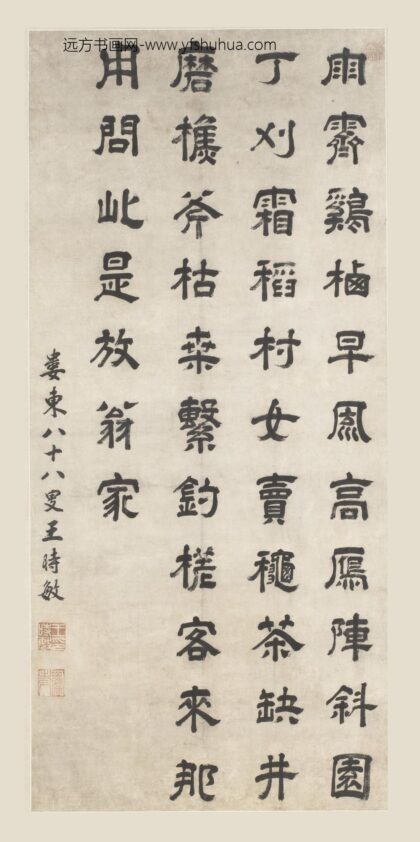 远方书画网-www.yfshuhua.com
雨霽鷄栖早凮高鴈陣斜園
丁刈霜稻村女賣穐茶缺井
磨樵斧枯桒繫釣槎客來那
用問此是放翁家
婁東八十八叟王時敏